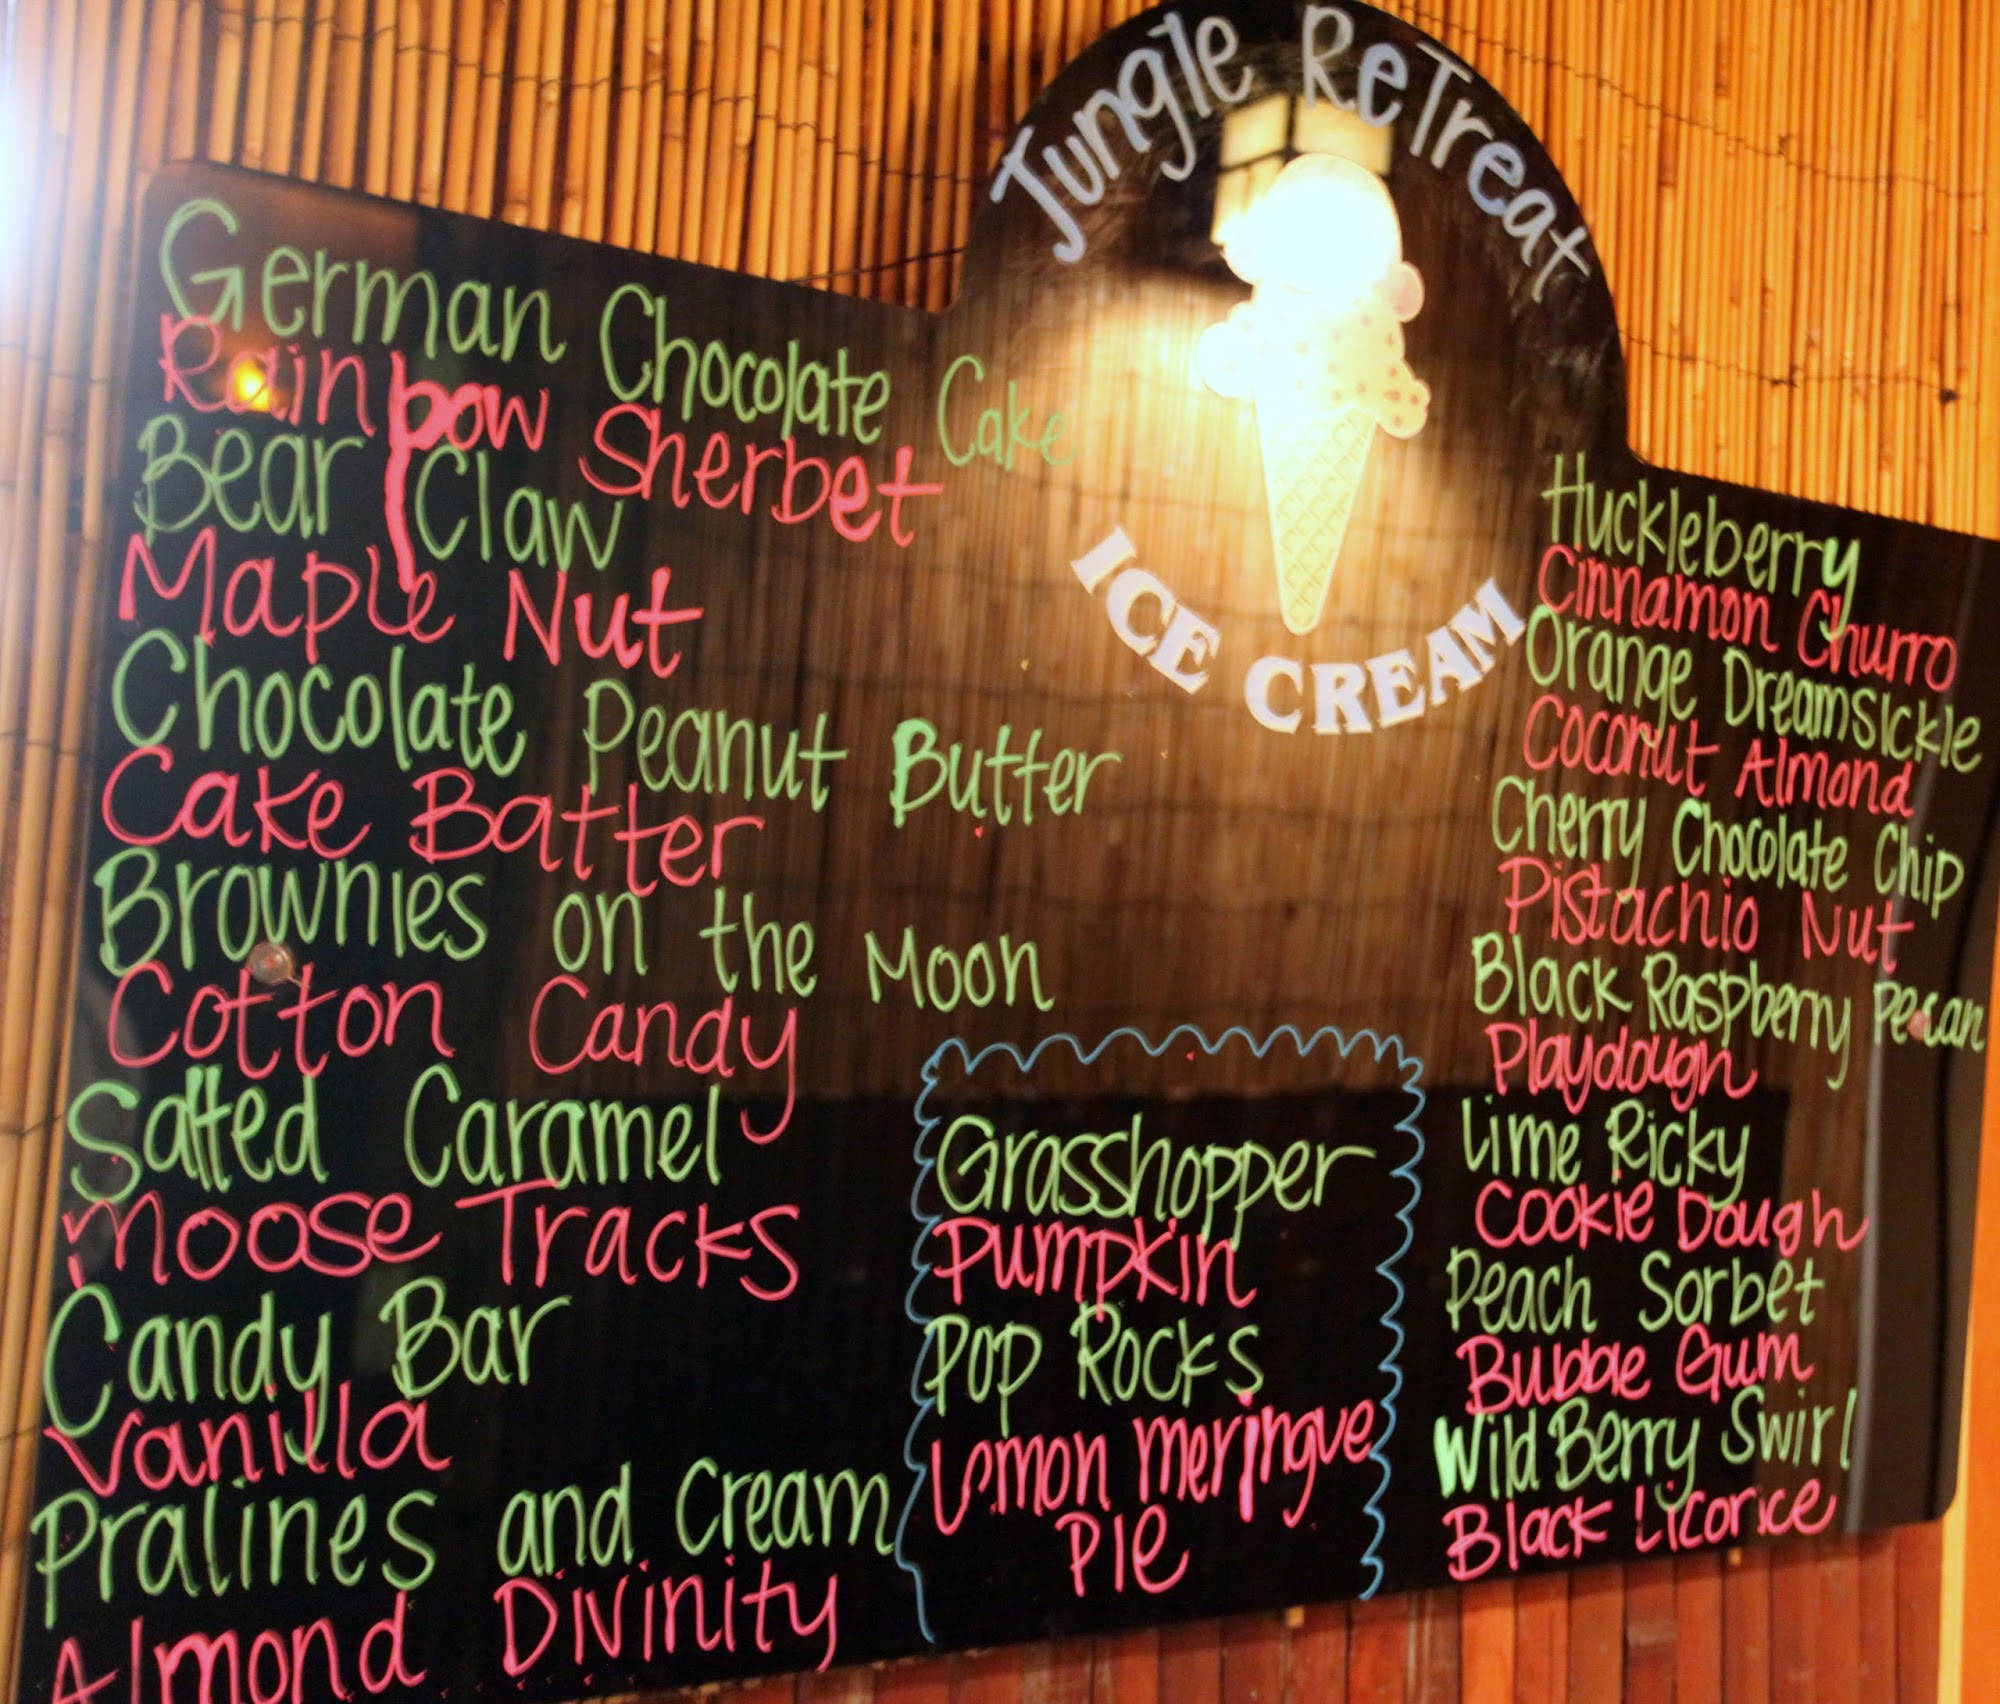 Jungle ReTreat
ICE CREAM
German Chocolate Cake
Rainbow Sherbet
Bear Claw
Maple Nut
Chocolate Peanut Butter
Cake Batter
Brownies on the Moon
Cotton Candy
Salted Caramel
Moose Tracks
Candy Bar
Vanilla
Pralines and Cream
Almond Divinity
Grasshopper
Pumpkin
Pop Rocks
Lemon Meringue
Pie
Huckleberry
Cinnamon Churro
Orange Dreamsickle
Coconut Almond
Cherry Chocolate Chip
Pistachio Nut
Black Raspberry Pecan
Playdough
Lime Ricky
Cookie Dough
Peach Sorbet
Bubble Gum
Wild Berry Swirl
Black Licorice